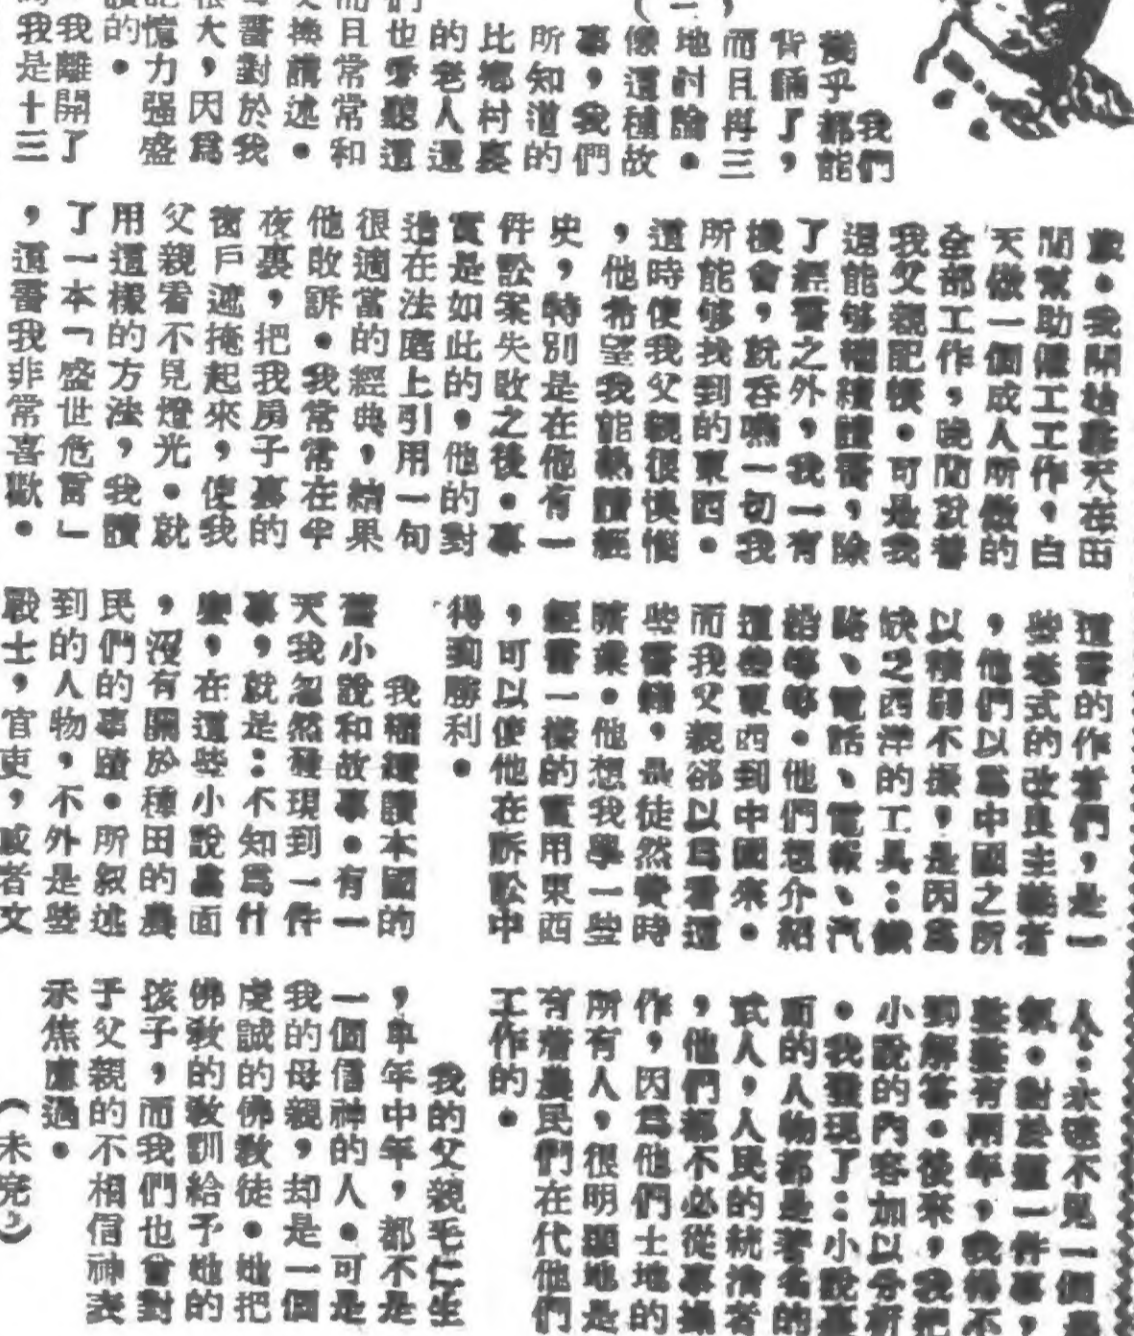 我們
幾乎都能
背誦了，
而且再三
地討論。
像這種故
事，我們
所知道的
比鄉村裏
的老人還
們也愛聽這
而且常常和
換講述。
書對於我
很大，因爲
記憶力强盛
讀的。
我離開了
我是十三
歲。我開始整天在田
間幫助僱工工作，白
天做一個成人所做的
全部工作，晚間說替
我父親記帳。可是我
還能够繼續讀書，除
了經書之外，我一有
機會，就吞嚥一切我
所能够找到的東西。
這時使我父親很懊惱
，他希望我能熟讀經
史，特別是在他有一
件訟案失敗之後。事
實是如此的，他的對
造在法庭上引用一句
很適當的經典，結果
他敗訴。我常常在半
夜裏，把我房子裏的
窗戶遮掩起來，使我
父親看不見燈光。就
用這樣的方法，我讀
了一本「盛世危言」
，這書我非常喜歡。
這書的作者們，是一
些老式的改良主義者
，他們以爲中國之所
以積弱不振，是因爲
缺乏西洋的工具：鐵
路、電話、電報、汽
船等等。他們想介紹
這些東西到中國來。
而我父親卻以爲看這
些書籍，是徒然費時
廢業。他想我學一些
經書一樣的實用東西
，可以使他在訴訟中
得到勝利。
我繼續讀本國的
舊小說和故事。有一
天我忽然發現到一件
事，就是：不知爲什
麼，在這些小說裏面
，沒有關於種田的農
民們的事蹟。所叙述
到的人物，不外是些
戰士，官吏，或者文
人：永遠不見一個農
氓。對於這一件事，
整整有兩年，我得不
到解答。後來，我把
小說的內容加以分析
。我發現了：小說裏
面的人物都是著名的
武人，人民的統治者
，他們都不必從事操
作，因爲他們土地的
所有人，很明顯地是
有着農民們在代他們
工作的。
我的父親毛仁生
，早年中年，都不是
一個信神的人。可是
我的母親，却是一個
虔誠的佛教徒。她把
佛教的教訓給予她的
孩子，而我們也會對
于父親的不相信神表
示焦慮過。
（未完）